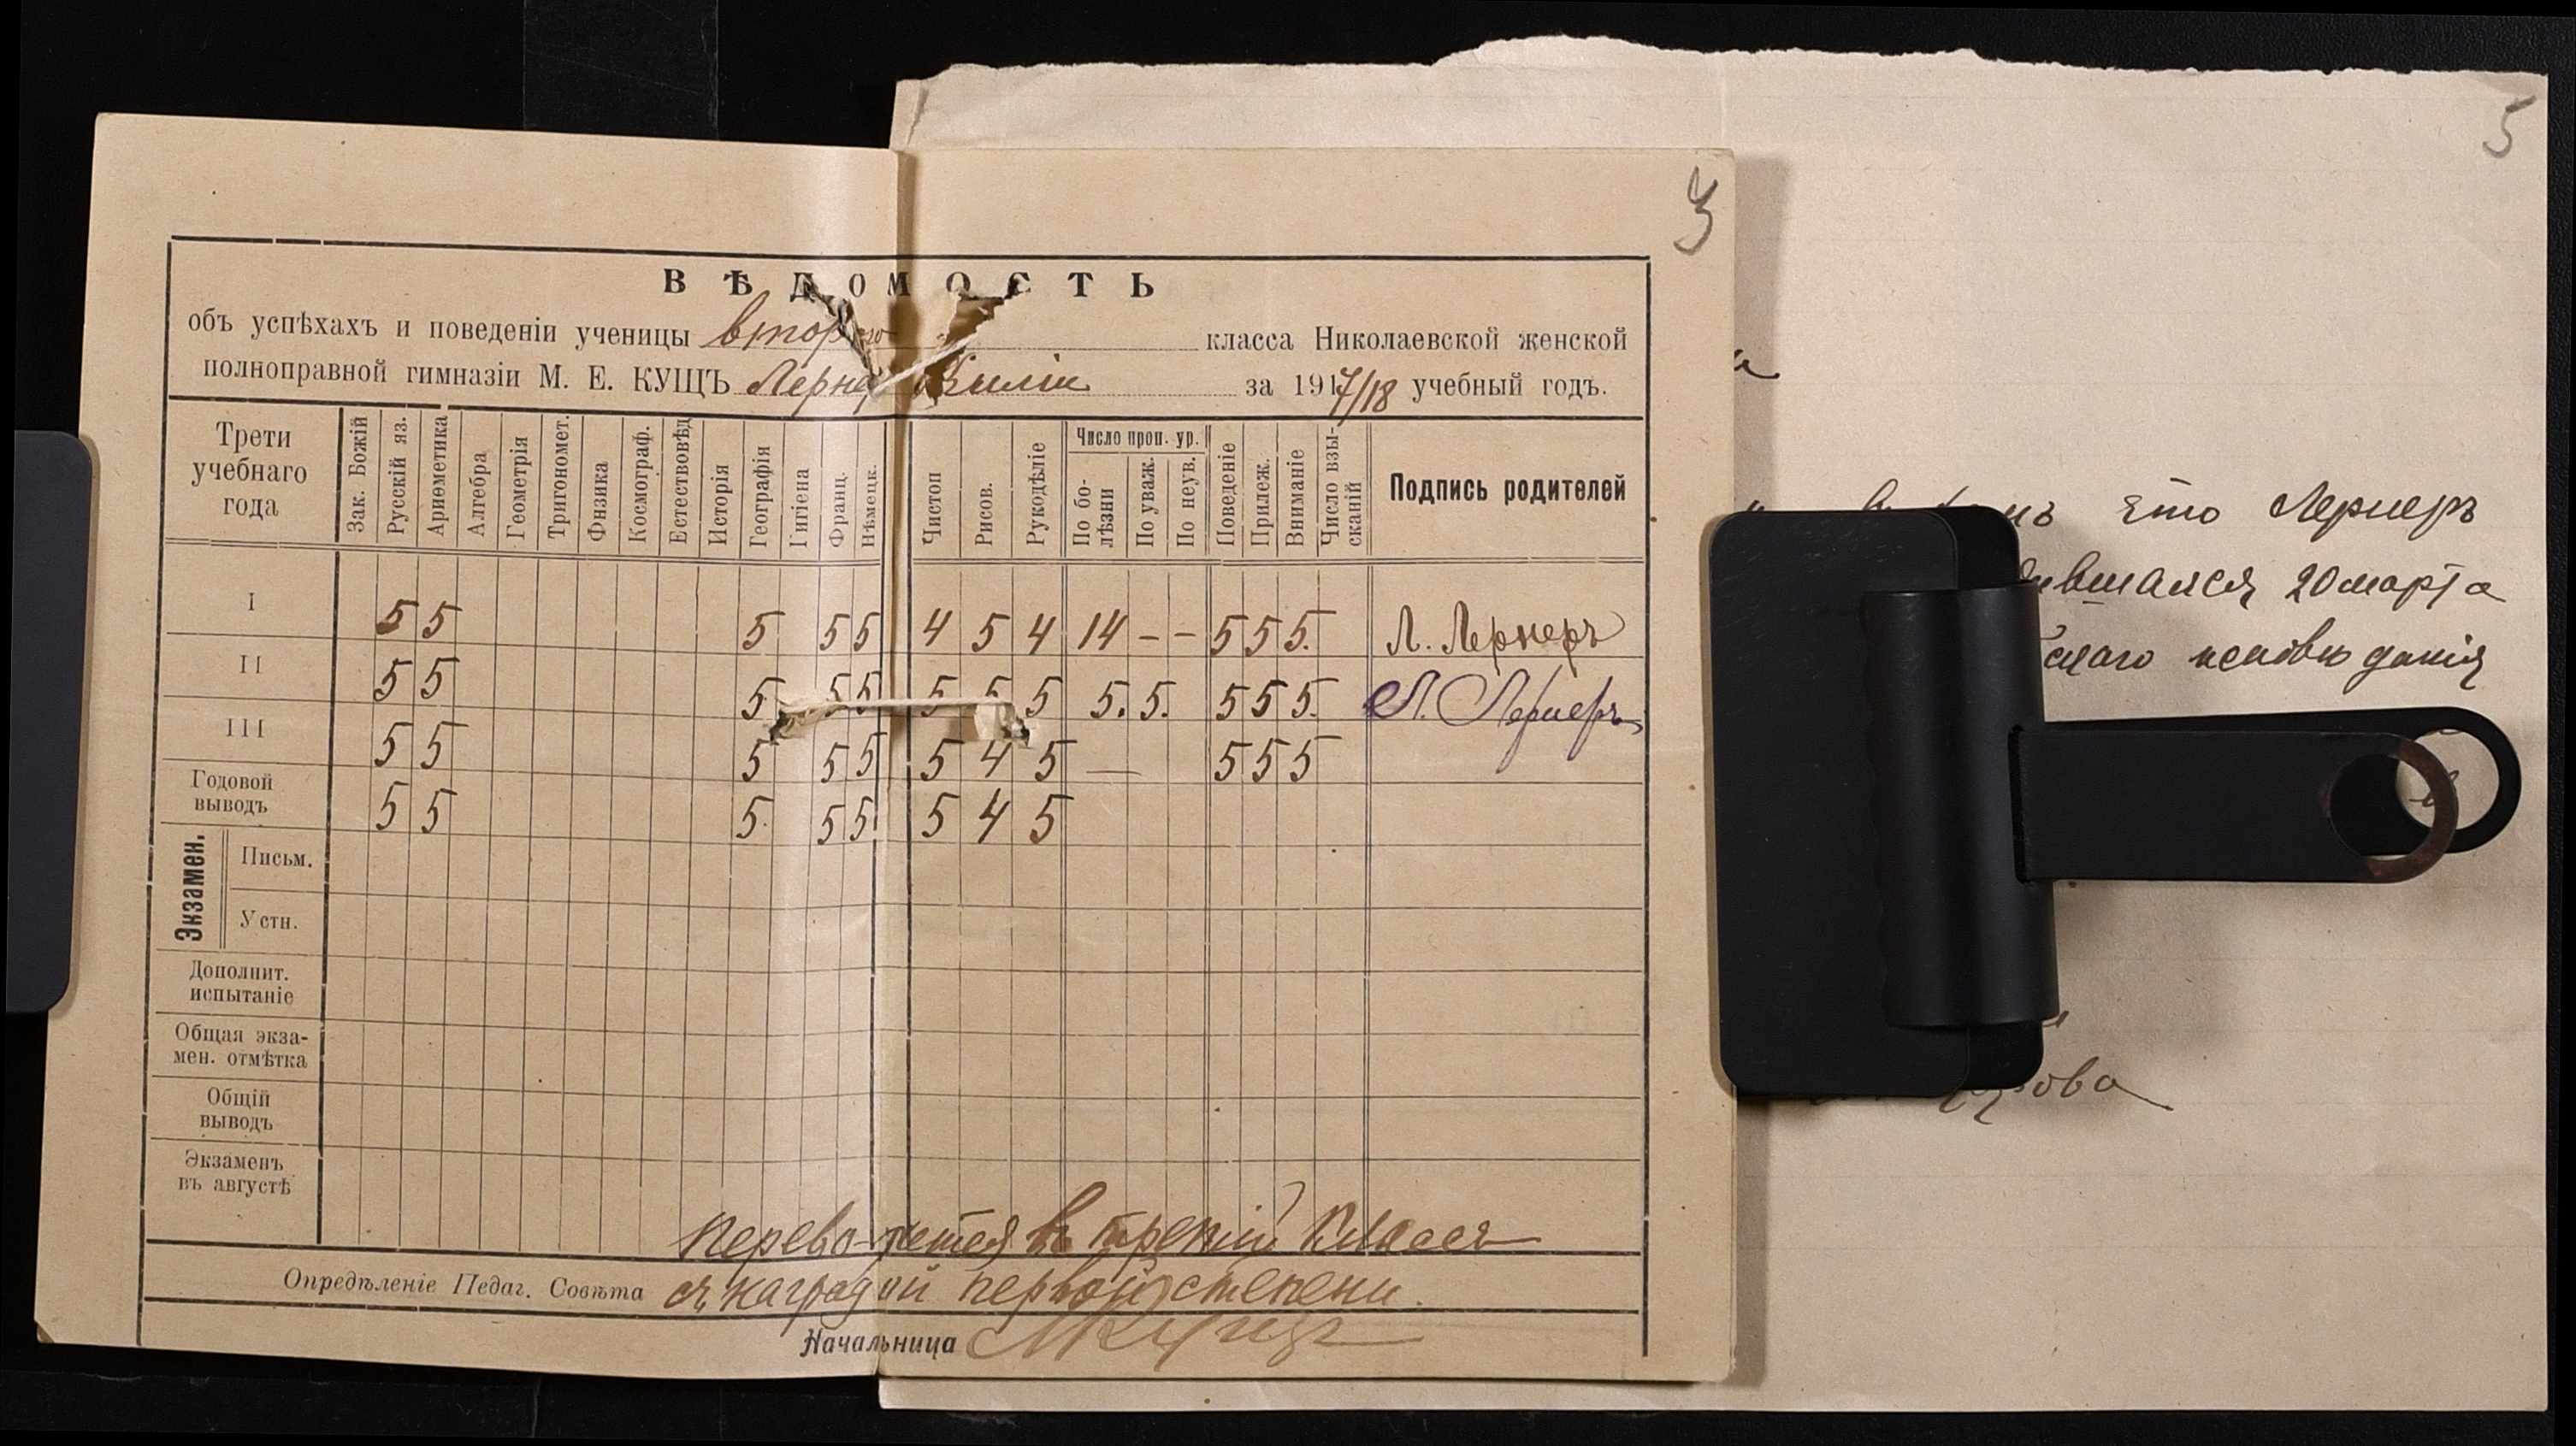 5
3
ВѢДОМОСТЬ
объ успѣхахъ и поведеніи ученицы второго класса Николаевской женской
полноправной гимназіи М. Е. КУЩЪ Лернер Лиліи за 1917/18 учебный годъ.
Трети учебнаго года
Зак. Божій
Русскій яз.
Ариѳметика
Алгебра
Геометрія
Тригономет.
Физика
Космограф.
Естествовѣд
Исторія
Географія
Гигіена
Франц.
Нѣмецк.
Чистоп
Рисов.
Рукодѣліе
Число проп. ур.
По болѣзни
По уваж.
По неув.
Поведеніе
Прилеж.
Вниманіе
Число взысканій
Подпись родителей
I 5 5 5 5 5 4 5 4 14 – – 5 5 5. Л. Лернеръ
II 5 5 5 5 5 5 5 5 5. 5. 5 5 5. Л. Лернеръ
III 5 5 5 5 5 5 4 5 — 5 5 5
Годовой выводъ 5 5 5. 5 5 5 4 5
Экзамен.
Письм.
Устн.
Дополнит. испытаніе
Общая экзамен. отмѣтка
Общій выводъ
Экзаменъ въ августѣ
Переводится въ третій классъ
Опредѣленіе Педаг. Совѣта съ наградой первой степени.
Начальница МКущъ
что Лернеръ
20 марта
исповѣданія